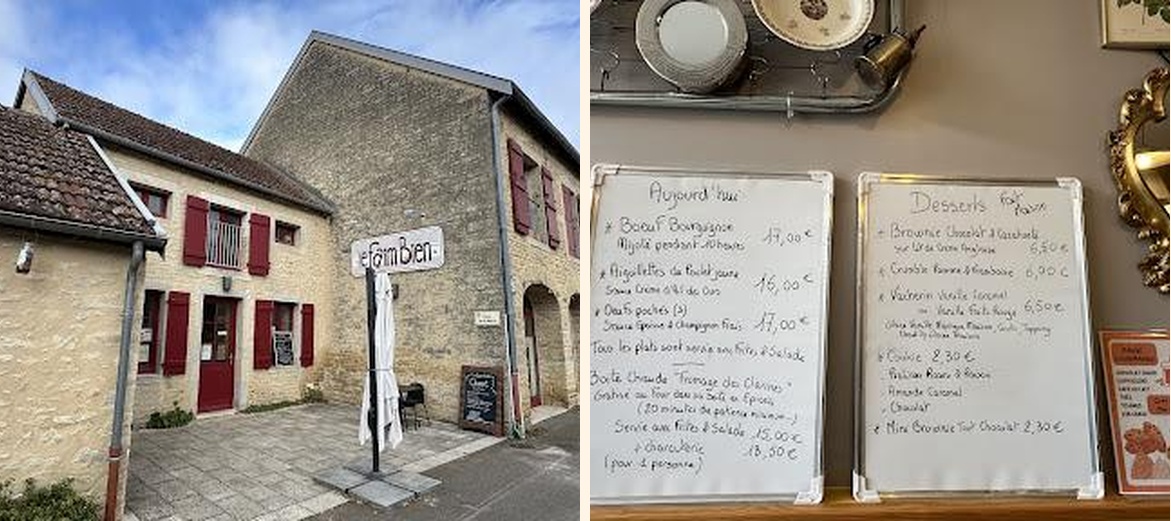 Faim Bien
Aujourd'hui
* Boeuf Bourguignon
Mijoté pendant 10 heures
17,00€
* Aiguillettes de Poulet jaune
Sauce Crème d'Ail des Ours
16,00€
* Oeufs pochés (3)
Sauce Epoisse & Champignon Frais
17,00€
Tous les plats sont servis avec Frites & Salade
Boite Chaude "Fromage des Clarines"
Gratiné au Four dans sa Boite en Épicéa
(20 minutes de patience minimum)
Servie avec Frites & Salade 15,00€
+ charcuterie 18,50€
(pour 1 personne)
Desserts Fait Maison
* Brownie Chocolat & Cacahuète
sur lit de Crème Anglaise
6,50€
* Crumble Pomme & Framboise 6,90€
* Vacherin Vanille Caramel
ou Vanille Fruits Rouge
6,50€
Glace Vanille Meringue Maison, Coulis, Topping
* Cookie 2,30€
Amande Caramel
Chocolat
* Mini Brownie Tout Chocolat 2,30€